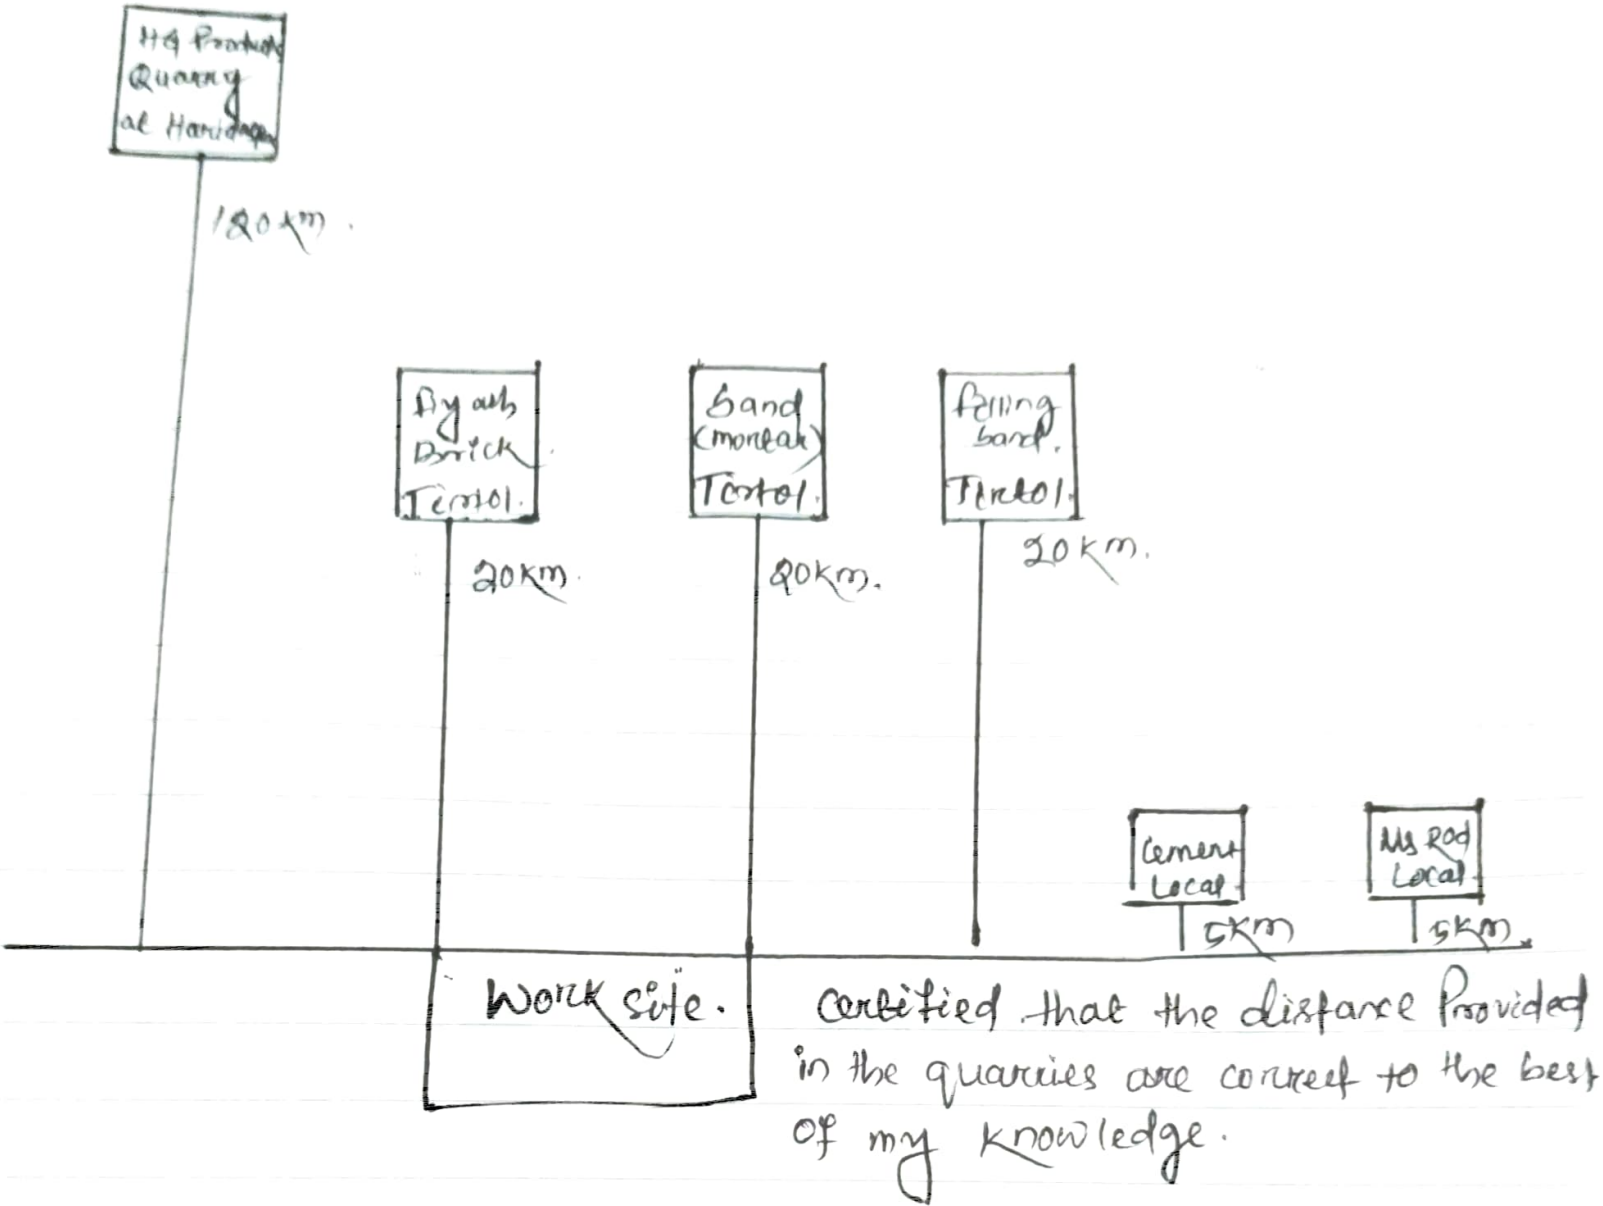 HG Products
Quarry
at Haridaspur
120 km.
Fly ash
Brick
Tirtol.
20 km.
Sand
(mortar)
Tirtol.
20 km.
filling
sand.
Tirtol.
20 km.
Cement
Local.
5 km
MS Rod
Local.
5 km.
Work site.
Certified that the distance Provided
in the quarries are correct to the best
of my knowledge.